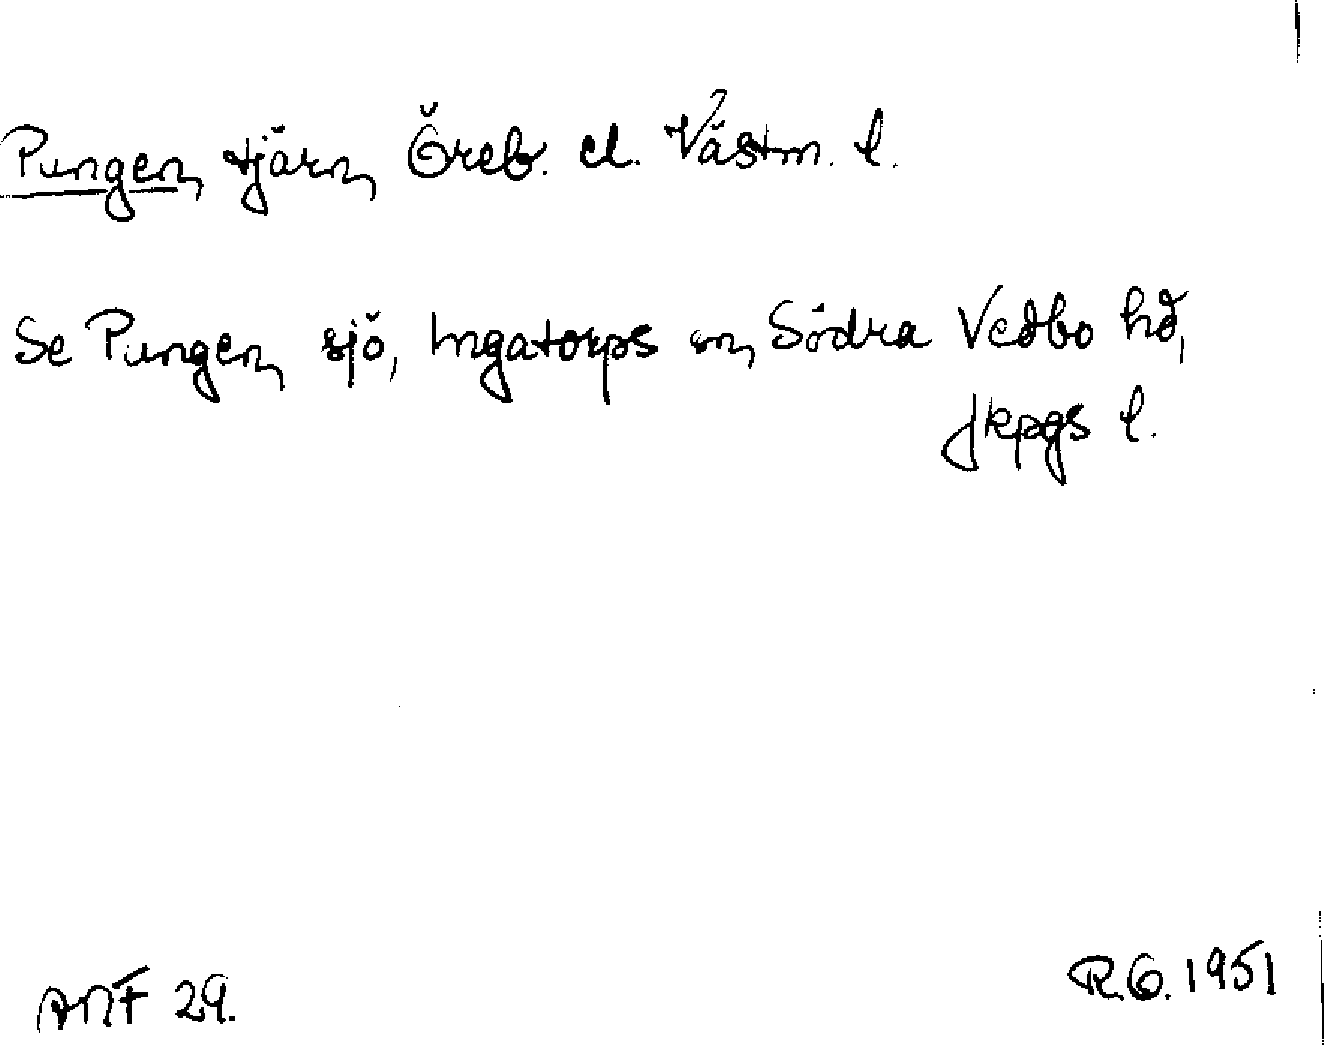 Pungen, tjärn, Öreb. el. Västm. l.
Se Pungen, sjö, Ingatorps sn, Södra Vedbo hd,
Jkpgs l.
ANF 29.
R.G. 1951